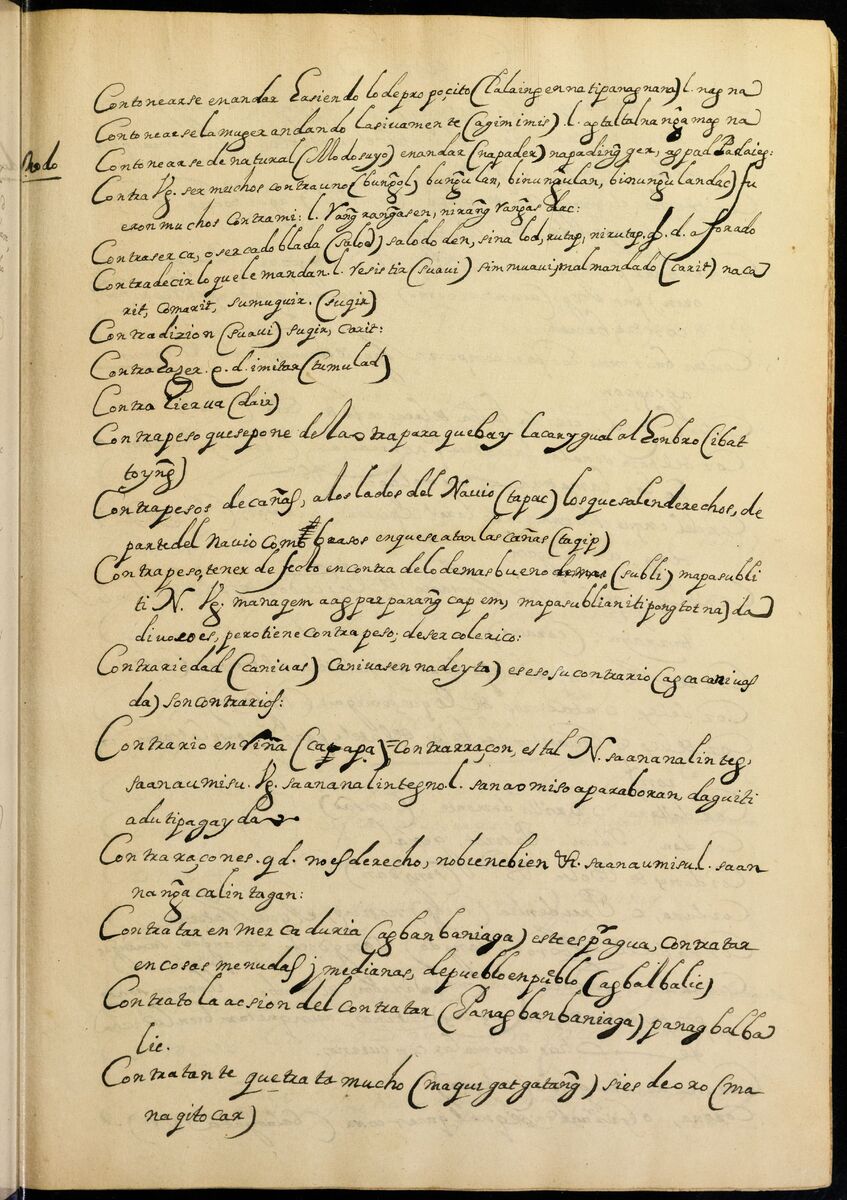 Contonearse en andar Hasiendo lo de propoçito (Lalaing en na ti panagnana) l. nag na
Contonearse la muger andando lasivamente (agimimis) l. agtaltalnan nga mag na
modo
Contonearse de natural (Modo suyo) en andar (napader) napading ger, agpad
Contra Vg. ser muchos contra uno (bungol) bungulan, binungulan, binungulandac) fu
eron muchos contra mi: l. Vang rangasen, nirang Vangas dac:
Contraserca, o serca doblada (Salod) salododen, sinalod, rutap, nirutap. q. d. aforado
Contradecir lo que le mandan. l. resistir (suavi) simmuavi, mal mandado (carit) naca
rit, comarit, sumuguir. (sugir)
Contradizion (suavi) sugir, carit:
Contra Hazer. q. d. imitar (tumulad)
Contra Hierva (dair)
Contrapeso que se pone de la otra para que bay la car ygual al Honbro (ibat
toyng)
Contrapesos de cañas, a los lados del Navio (tapac) los que salen derechos, de
parte del navio como brasos en que se atan las cañas (tagip)
Contrapeso, tener defecto en contra de lo demas bueno (subli) mapasubli
ti N. Vg. managem a agparparang cap em, mapasublian iti pongtot na) da
divoso es, pero tiene contrapeso; de ser colerico:
Contrariedad (canivas) canivasen na deyta) es eso su contrario (agcacanivas
da) son contrarios:
Contrario en riña (capapa) = contrarraçon, es tal N. saan a nalinteg,
saan a umisu. Vg. saan a nalinteg no. l. sanaomiso a paraboran, daguiti
adu ti pagayda
Contra raçones. q d. no es derecho, no biene bien &c. saan a umisu l. saan
nanga calintagan:
Contratar en mercaduria (agbanbaniaga) este es pr agua, contratar
en cosas menudas j medianas, de pueblo en pueblo (agbalbalic)
Contrato la acsion del contratar (Panagbanbaniaga) panagbalba
lic.
Contratante que trata mucho (maquigatgatang) si es de oro (ma
nagitocar)